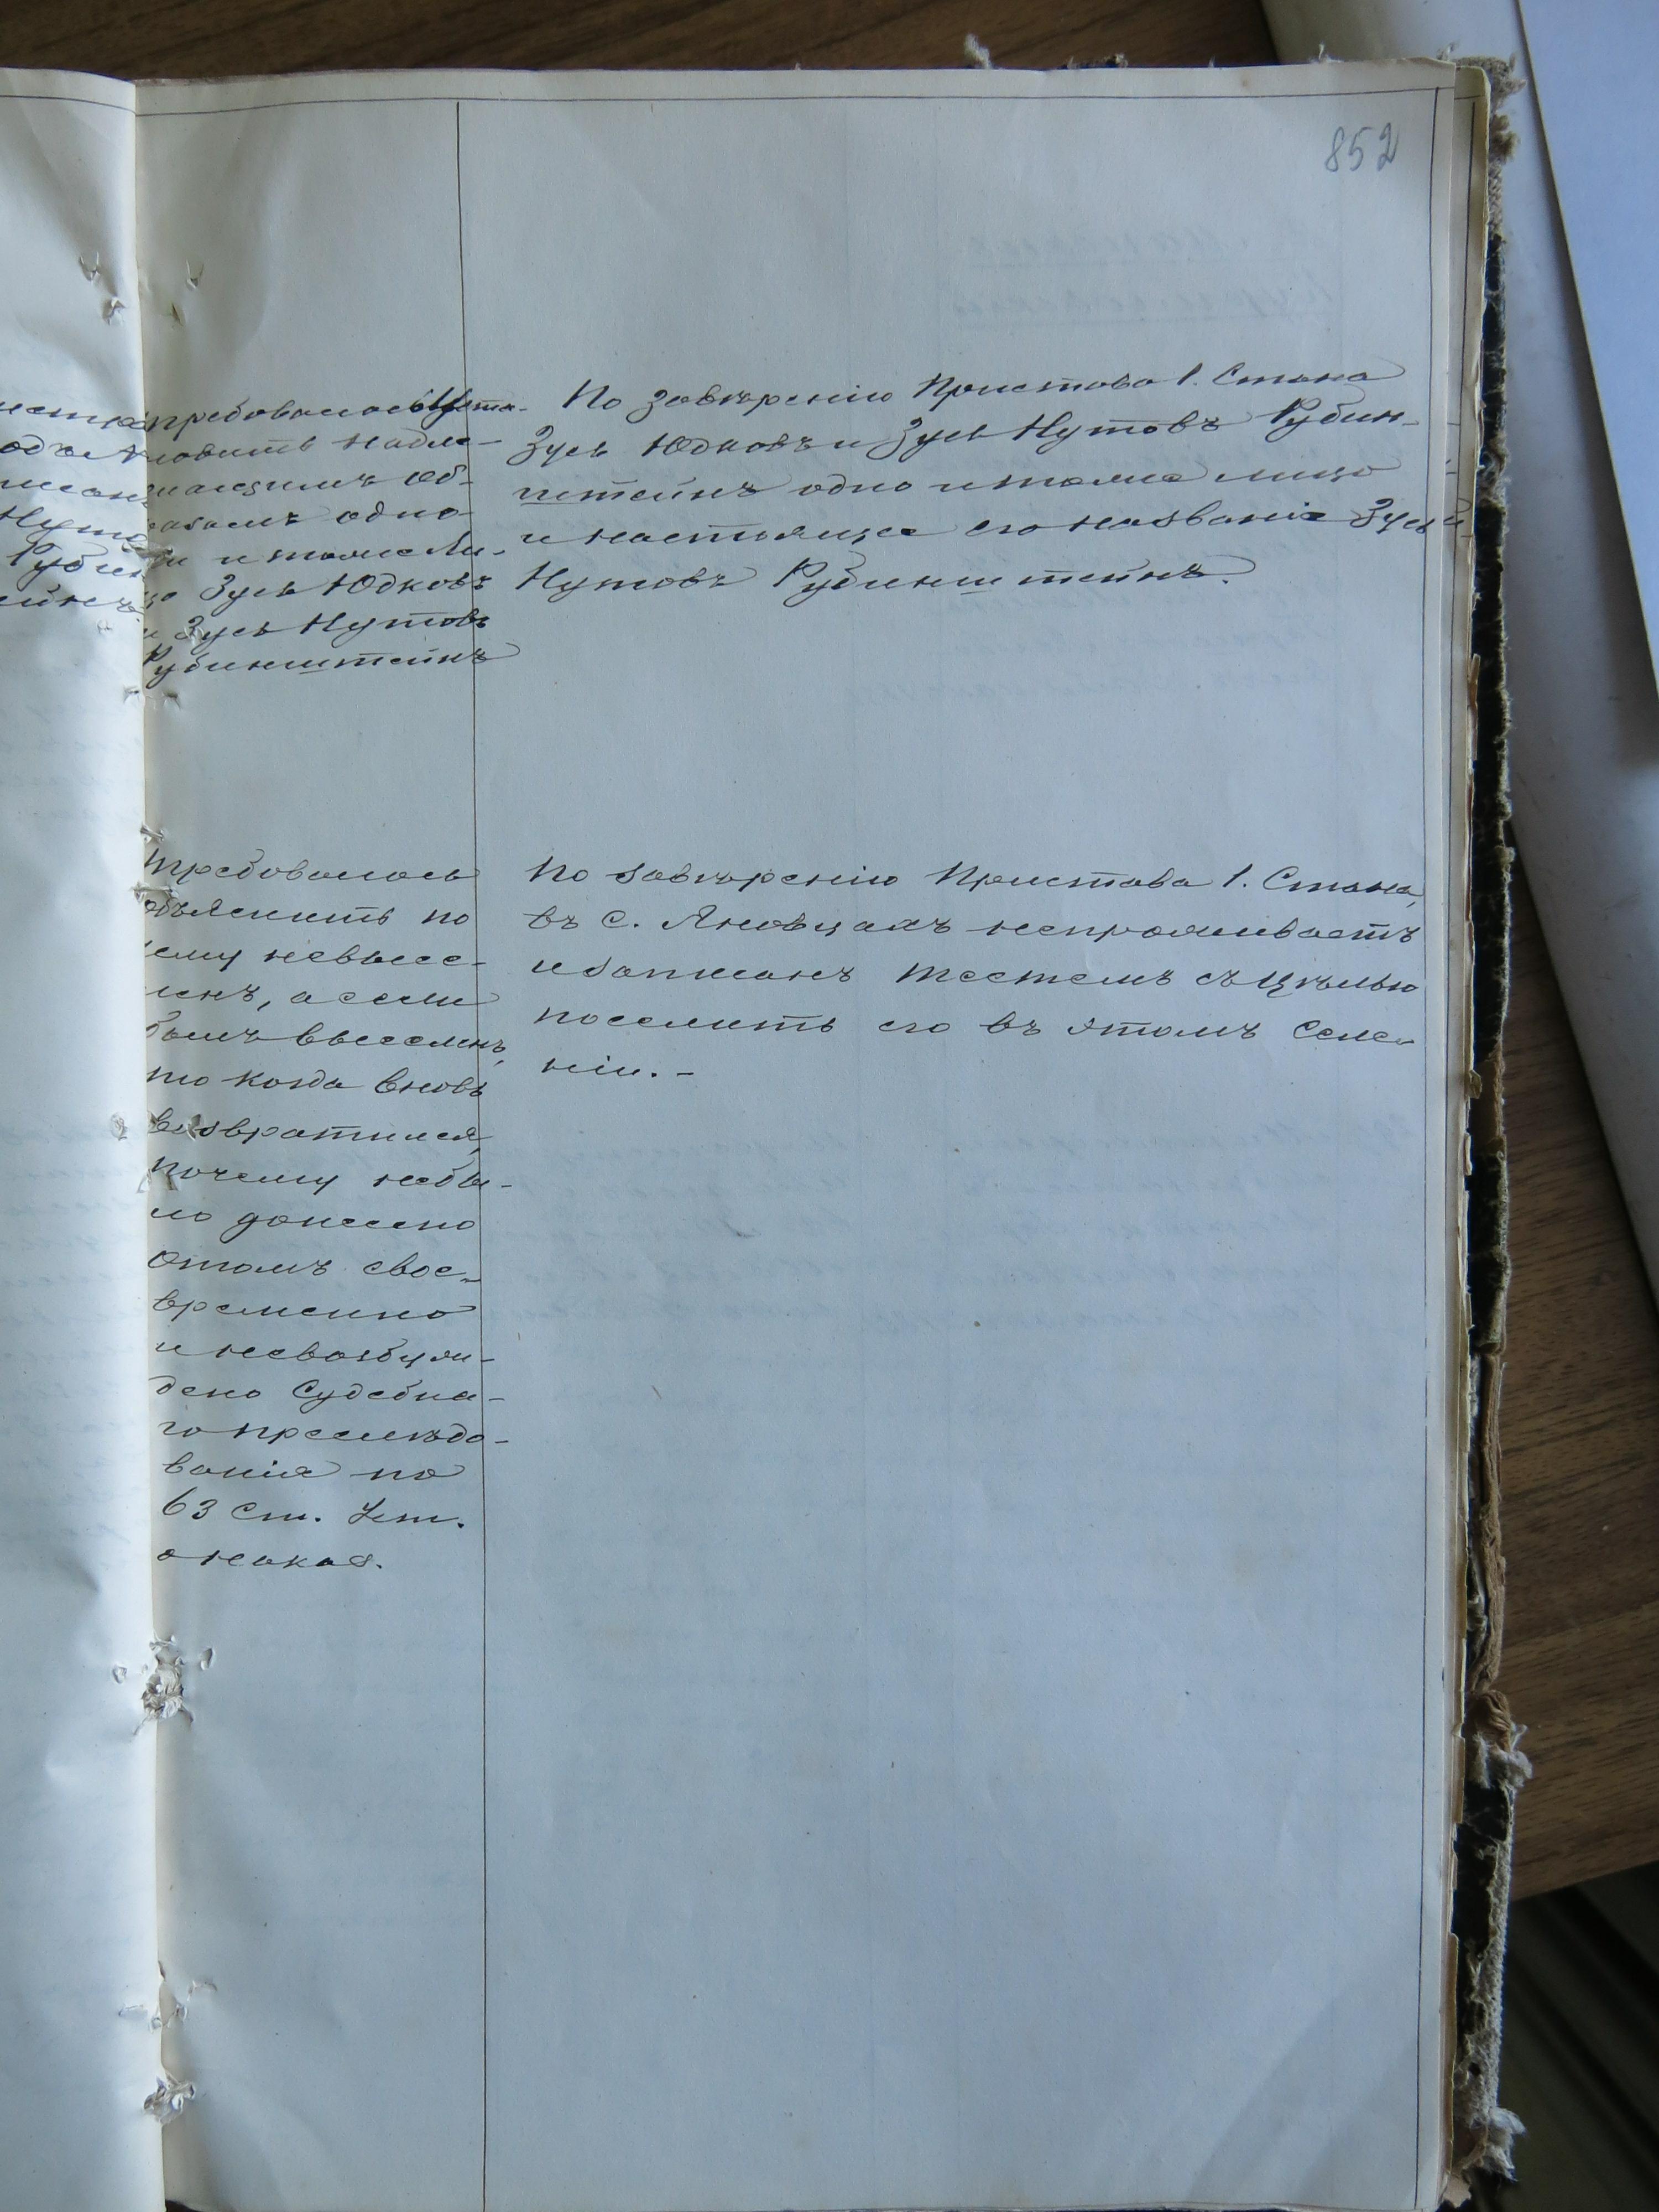 852
требовалось Уста-
новить надле-
жащимъ об-
разомъ одно
ли и тоже Ли-
цо Зусь Юдковъ
и Зусь Нутовъ
Рубинштейнъ
По завѣренію Пристава 1. Стана
Зусь Юдковъ и Зусь Нутовъ Рубин-
штейнъ одно и тоже лицо
и настоящее его названіе Зусь
Нутовъ Рубинштейнъ.
Требовалось
объяснить по
чему невысе-
ленъ, а если
былъ выселенъ,
то когда вновь
возвратился,
почему небы-
ло донесено
отомъ свое-
временно
и невозбуж-
дено Судебна-
го преслѣдо-
ванія по
63 Ст. Уст.
о наказ.
По завѣренію Пристава 1. Стана,
въ С. Яновцахъ непроживаетъ
и записанъ тестемъ съ Цѣлью
поселить его въ этомъ Селе-
ніи. -